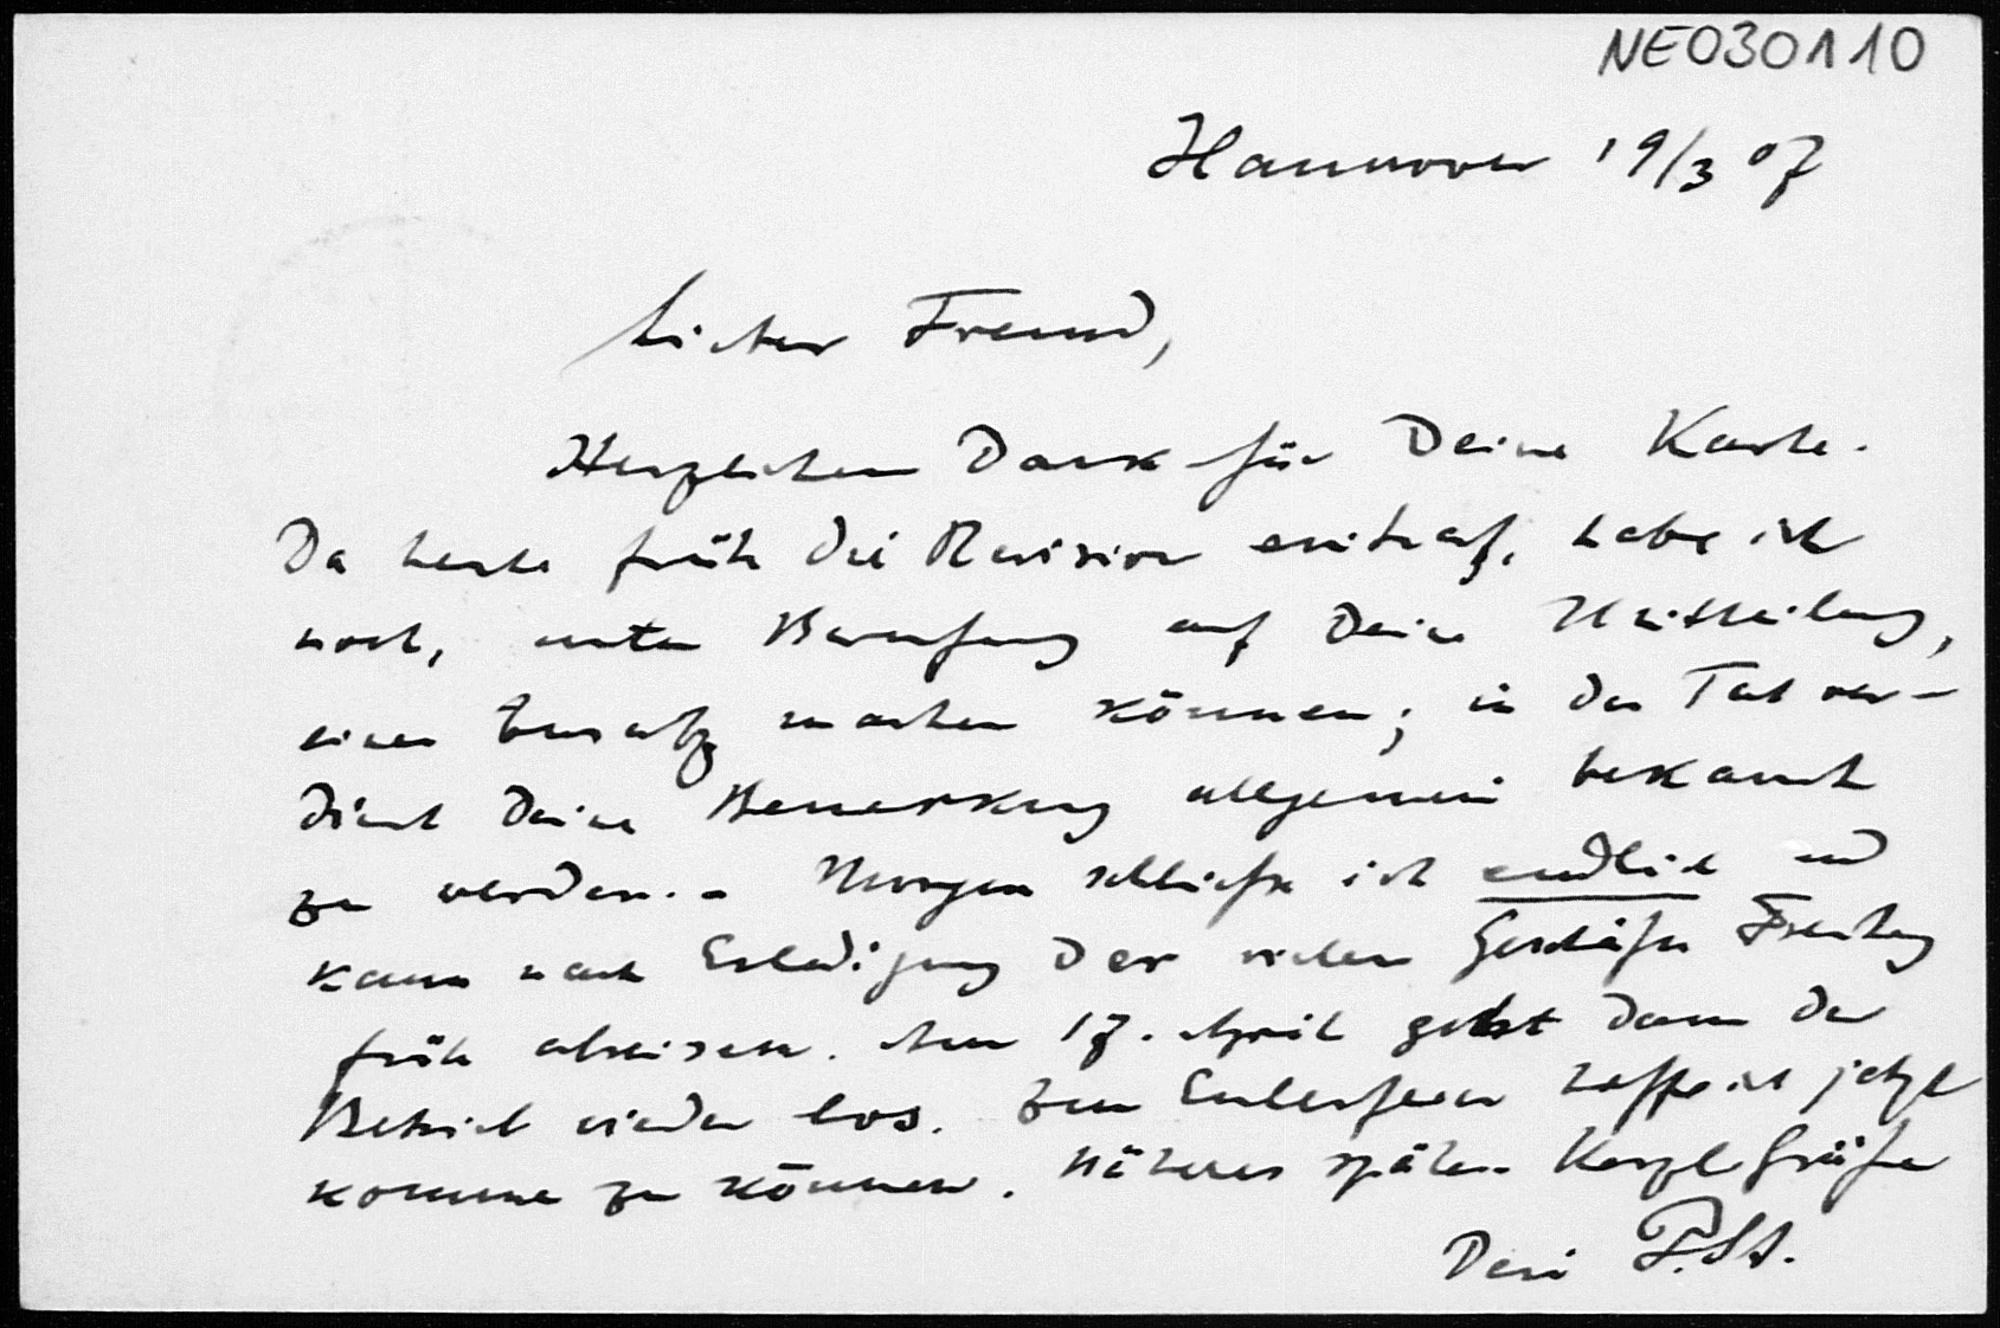 NE030110
Hannover 19/3 07
Lieber Freund,
Herzlichen Dank für Deine Karte.
Da heute früh die Revision eintraf, habe ich
noch, unter Berufung auf Deine Mittheilung,
einen Zusatz machen können; in der Tat ver-
dient Deine Bemerkung allgemein bekannt
zu werden. - Morgen schließe ich endlich und
kann nach Erledigung der vielen Geschäfte Freitag
früh abreisen. Am 17. April geht dann der
Betrieb wieder los. Zur Eulerfeier hoffe ich jetzt
kommen zu können. Näheres später. Herzl Grüße
Dein P.St.